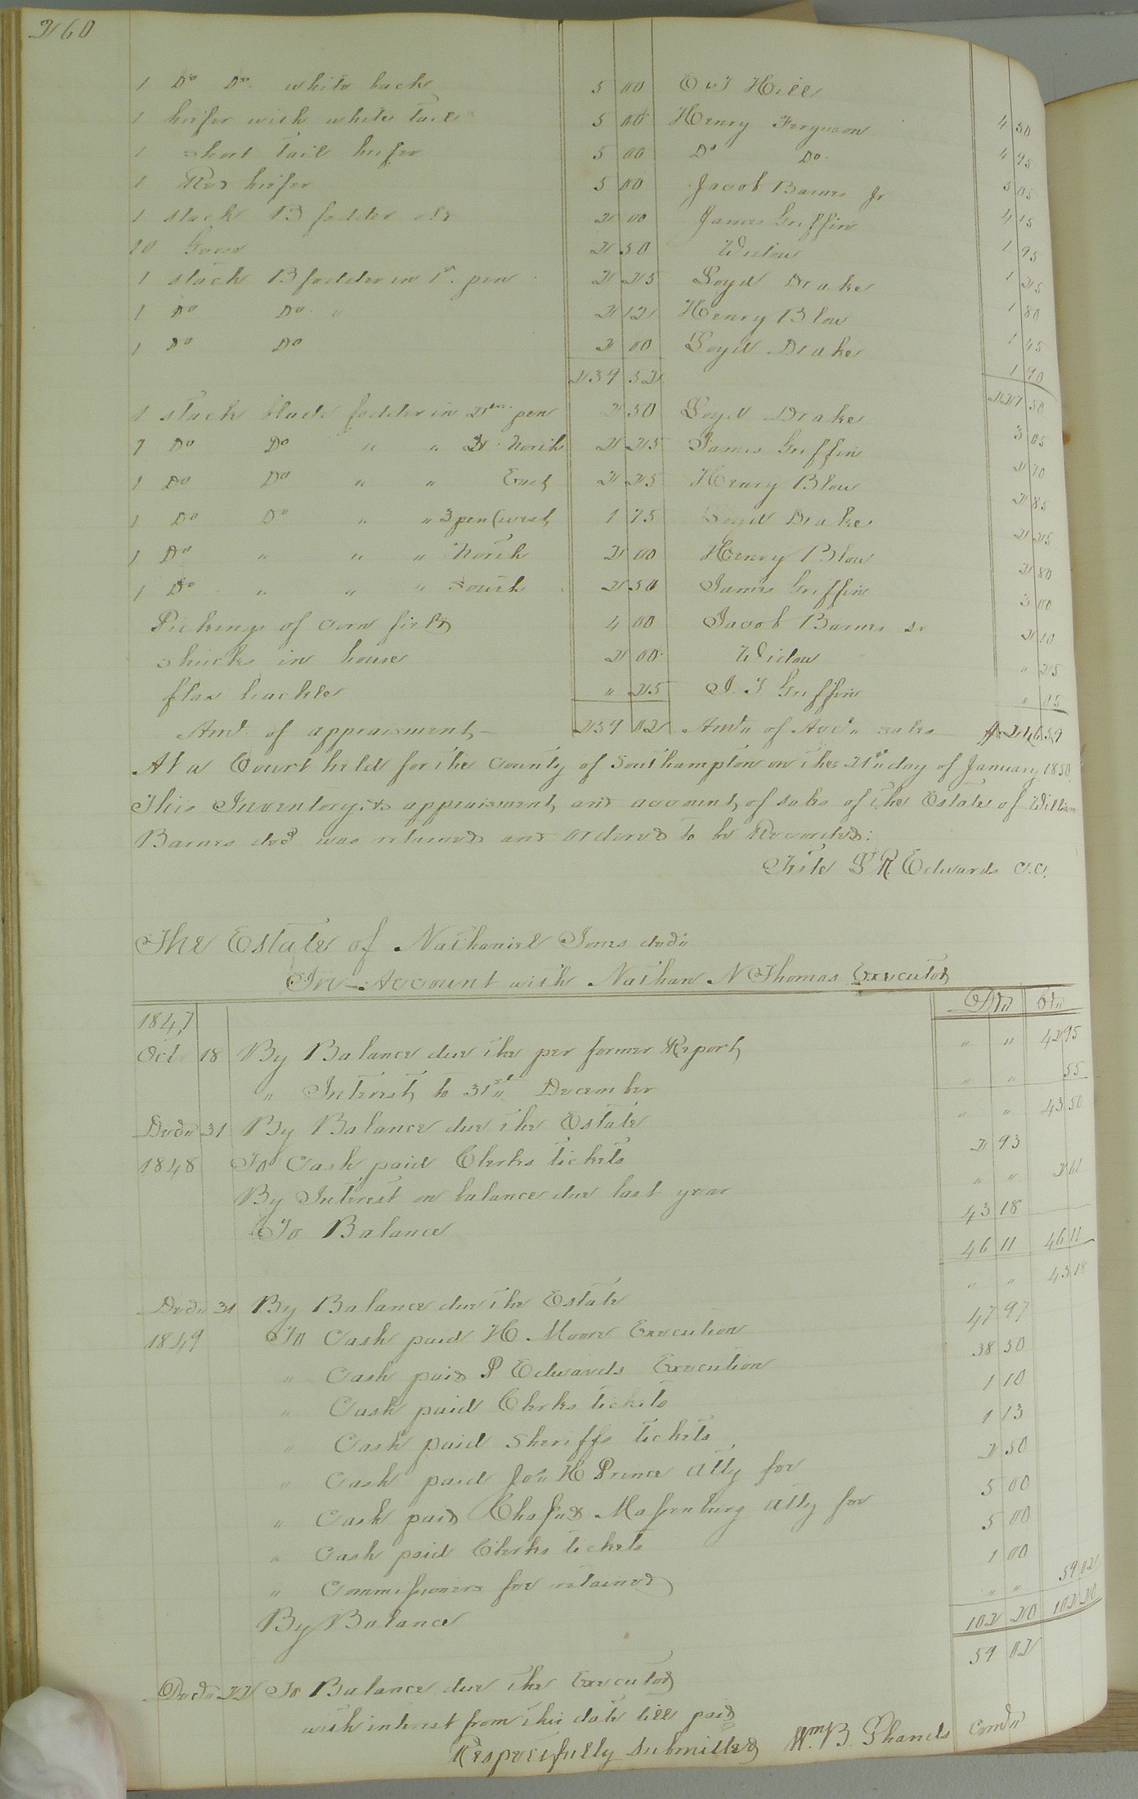 260
1 Do Do. white back 5 00 O & J Hill 4 50
1 heifer with white tail 5 00 Henry Ferguson 4 95
1 short tail heifer 5 00 Do Do. 5 05
1 Red heifer 5 00 Jacob Barnes Jr 4 15
1 stack B fodder old 2 00 James Griffin 1 95
20 Geese 2 50 Widow 1 25
1 stack B fodder in 1st. pen 2 25 Loyd Drake 1 80
1 Do Do. " 2 12 Henry Blow 1 45
1 Do Do 2 00 Loyd Drake 1 90
239 52 227 50
1 stack blade fodder in 2nd. pen 2 50 Loyd Drake 3 05
1 Do Do " " 2. North 2 25 James Griffin 2 70
1 Do Do " " East 2 25 Henry Blow 2 85
1 Do Do " " 3 pen (west 1 75 Loyd Drake 2 25
1 Do " " " North 2 00 Henry Blow 2 80
1 Do " " " South 2 50 James Griffin 3 00
Pickings of corn field 4 00 Jacob Barnes sr 2 10
shucks in house 2 00 Widow " 25
flax hackle " 25 J. T Griffin " 15
Amt. of appraisment 259 02 Amt" of Acct" sales $246.59
At a Court held for the County of Southampton on the 21st day of January 1850
This Inventory & appraisment and account of sales of the Estate of William
Barnes decd was returned and ordered to be Recorded:
Teste L R Edwards C.C.
The Estate of Nathaniel Jones decd"
In Account with Nathan N Thomas Executor
Dr" Cr"
1847
Oct 18 By Balance due the per former Report " " 42 95
" Interest to 31st" December " " 55
Decr" 31 By Balance due the Estate " " 43 50
1848 To Cash paid Clerks tickets 2 93
By Interest on balance due last year " " 2 61
To Balance 43 18
46 11 46 11
Decr" 31 By Balance due the Estate " " 43 18
1849 To Cash paid H. Moore Execution 47 97
" Cash paid P Edwards Execution 38 50
" Cash paid Clerks tickets 1 10
" Cash paid Sheriffs tickets 1 13
" Cash paid Jos" H Prince Atty fee 2 50
" Cash paid Massenburg Atty fee 5 00
" Cash paid Clerks tickets 5 00
" Commissioners fee retained 1 00
By Balance " " 59 02
102 20 102 20
Decr" 22 To Balance due the Executor 59 02
with interest from this date till paid
Respectfully Submitted Wm. B. Shands Comr"